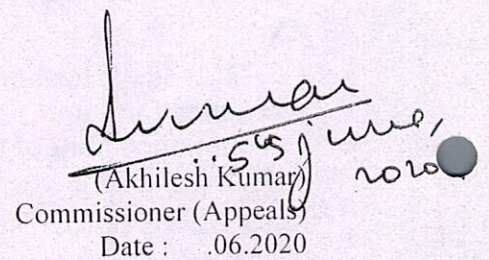 5th june,
2020
(Akhilesh Kumar)
Commissioner (Appeals)
Date : .06.2020